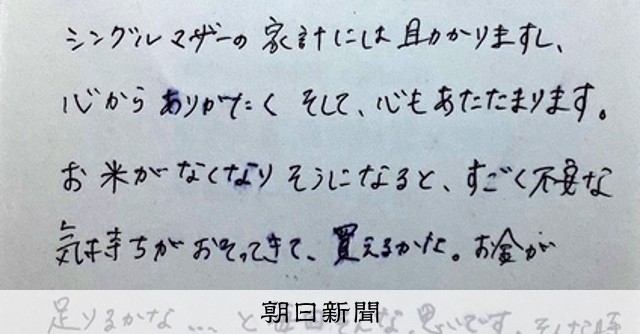 シングルマザーの家計には助かりますし、
心からありがたく そして、心もあたたまります。
お米がなくなりそうになると、すごく不安な
気持ちがおそってきて、買えるかな。お金が
足りるかな… と毎日そんな思いです。そんな時
朝日新聞